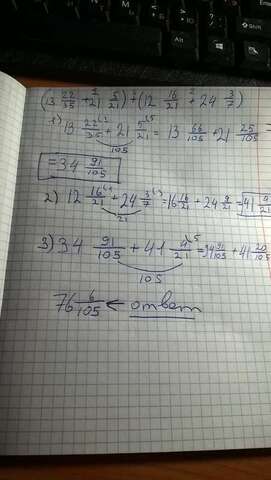 (13 22/35 + 21 5/21) + (12 16/21 + 24 3/7)
1) 13 22/35 + 21 5/21 = 13 66/105 + 21 25/105
105
= 34 91/105
2) 12 16/21 + 24 3/7 = 16 16/21 + 24 9/21 = 41 9/21
21
3) 34 91/105 + 41 4/21 = 34 91/105 + 41 20/105
105
76 6/105 ← ответ